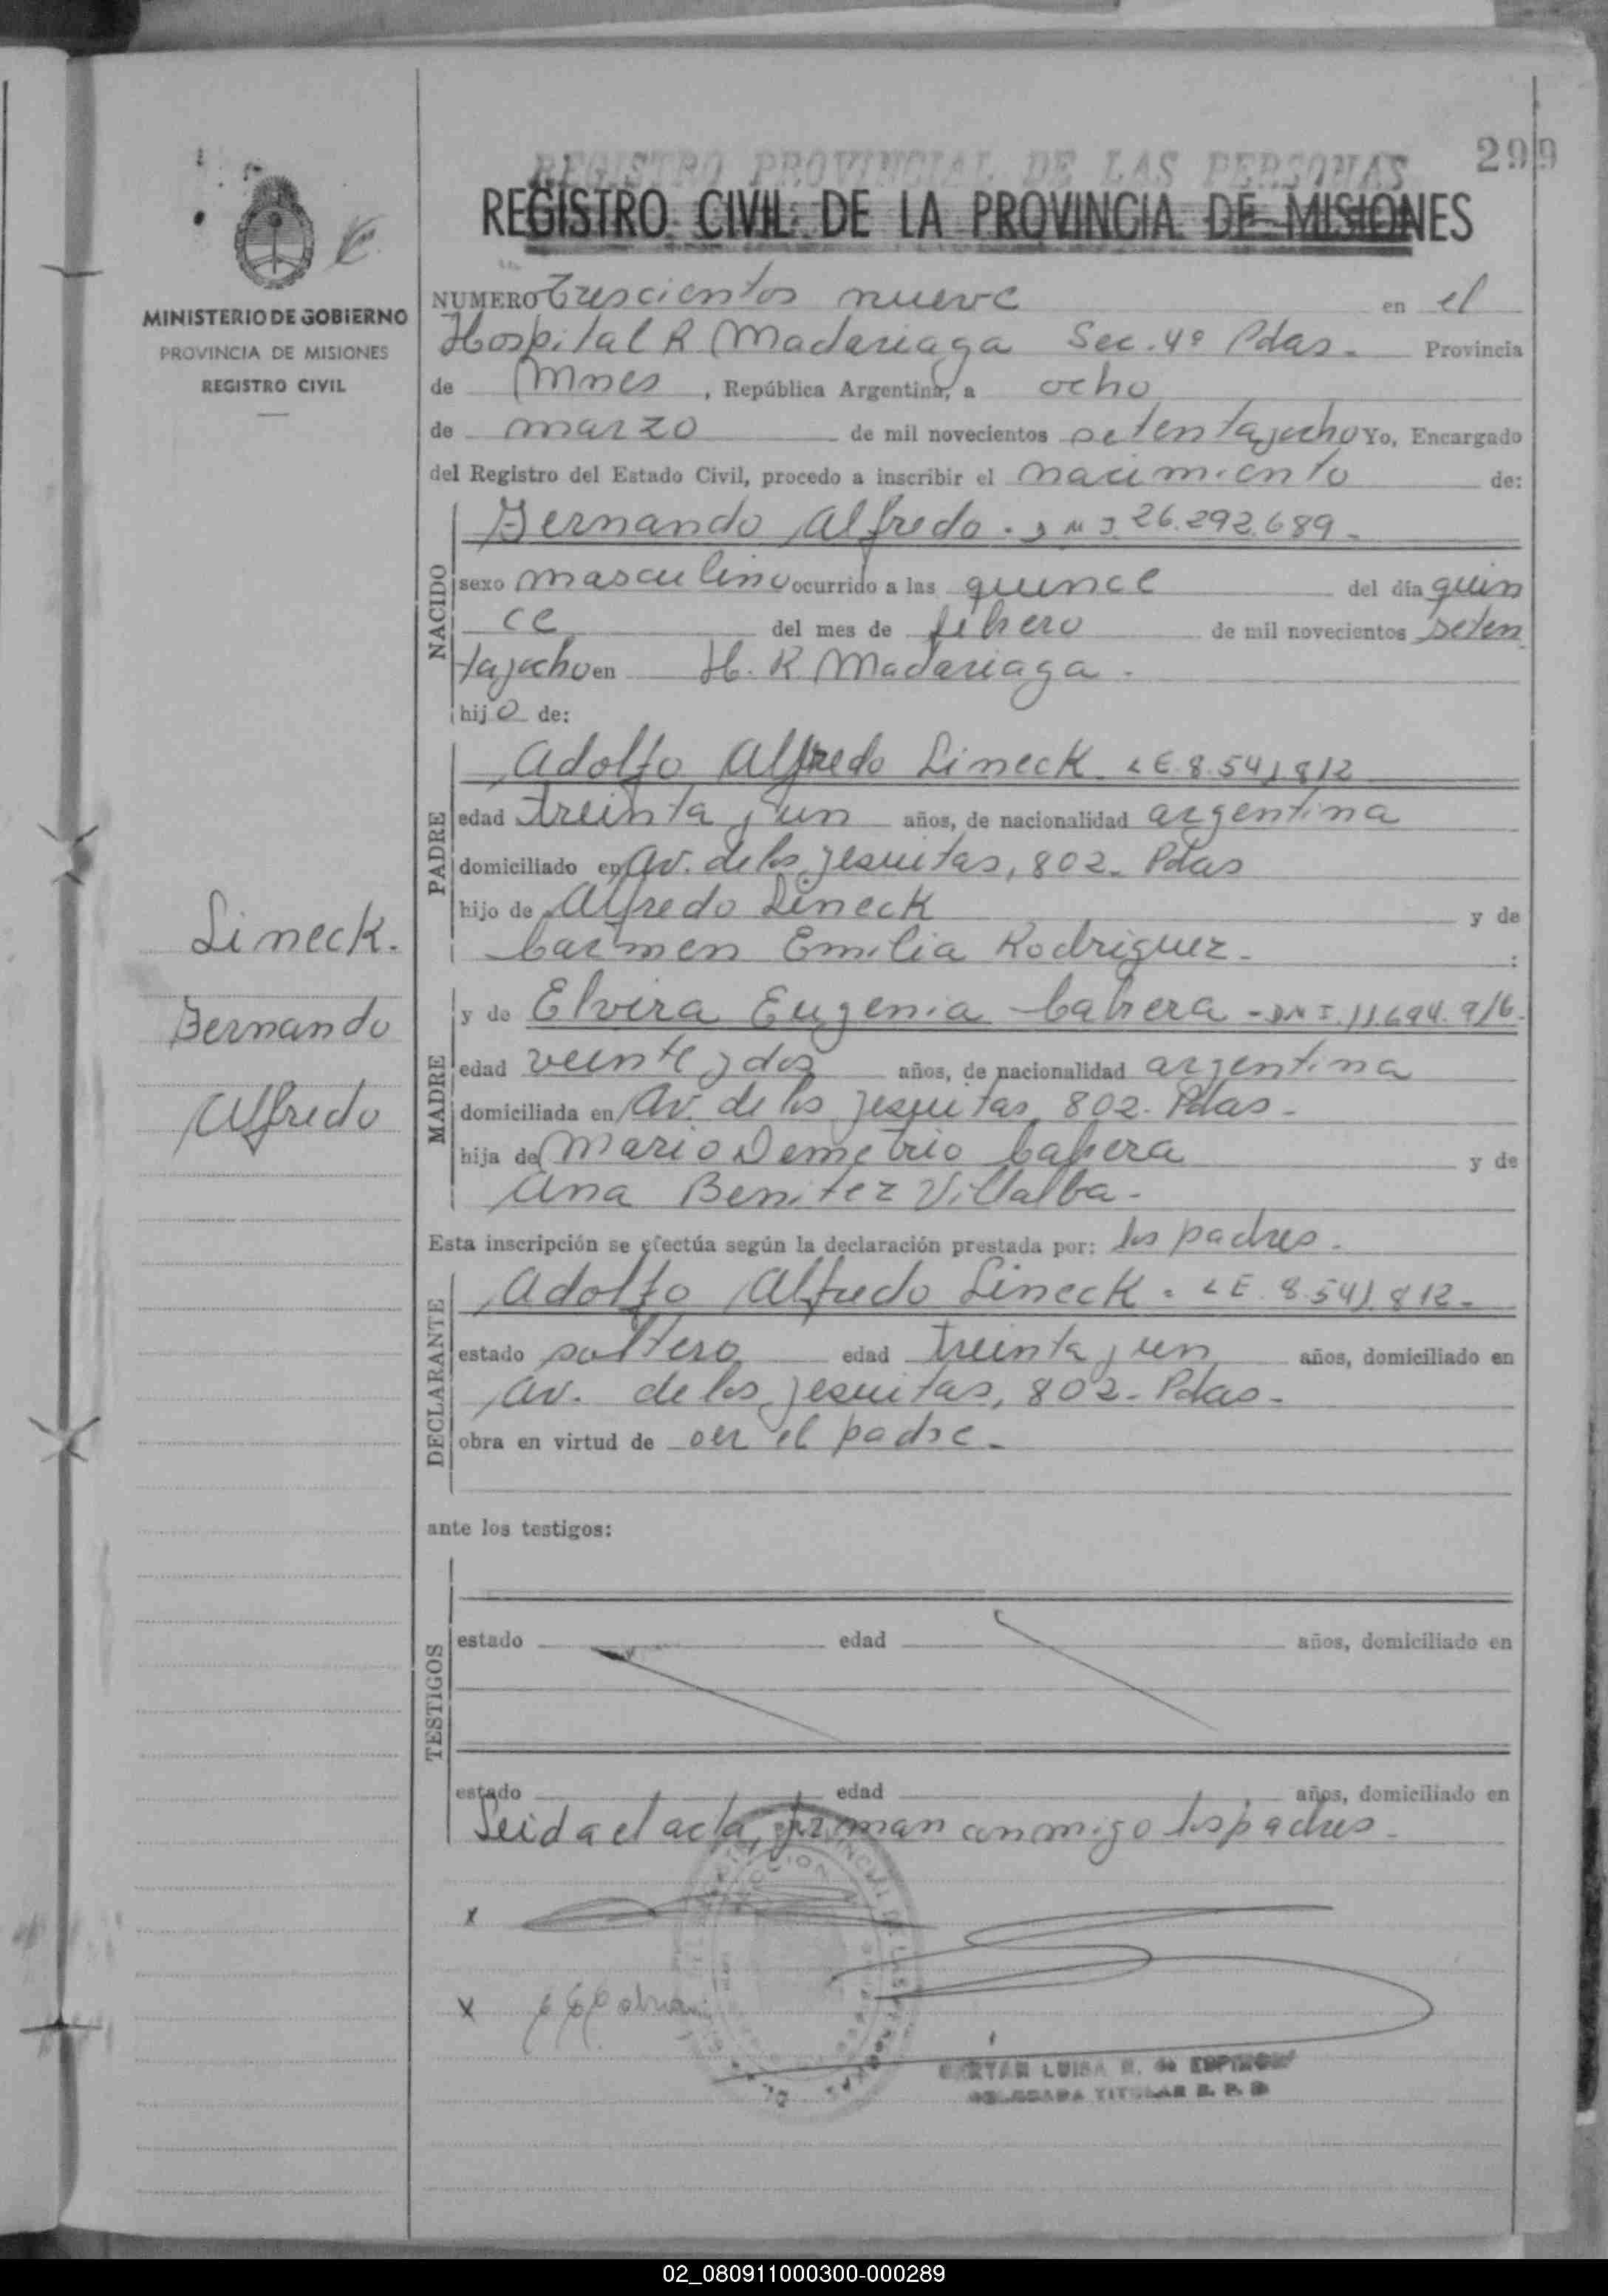 299
REGISTRO PROVINCIAL DE LAS PERSONAS
REGISTRO CIVIL DE LA PROVINCIA DE MISIONES
MINISTERIO DE GOBIERNO
PROVINCIA DE MISIONES
REGISTRO CIVIL
NUMERO Trescientos nueve en el
Hospital R Madariaga Sec. 4º Pdas. Provincia
de Mnes, República Argentina, a ocho
de marzo de mil novecientos setentayocho Yo, Encargado
del Registro del Estado Civil, procedo a inscribir el nacimiento de:
NACIDO
Fernando Alfredo. DNI 26.292.689.
sexo masculino ocurrido a las quince del día quin
ce del mes de febrero de mil novecientos seten
tayocho en H. R. Madariaga.
hijo de:
PADRE
Adolfo Alfredo Lineck LE. 8.541.812
edad treinta y un años, de nacionalidad argentina
domiciliado en Av. de los Jesuitas, 802. Pdas
hijo de Alfredo Lineck y de
Carmen Emilia Rodriguez. :
MADRE
y de Elvira Eugenia Cabrera - DNI. 11.694.916.
edad veinte y dos años, de nacionalidad argentina
domiciliada en Av. de los Jesuitas 802. Pdas.
hija de Mario Demetrio Cabrera y de
Ana Benitez Villalba.
Esta inscripción se efectúa según la declaración prestada por: los padres.
DECLARANTE
Adolfo Alfredo Lineck. LE. 8.541.812.
estado soltero edad treinta y un años, domiciliado en
Av. de los Jesuitas, 802. Pdas.
obra en virtud de ser el padre.
ante los testigos:
TESTIGOS
estado edad años, domiciliado en
estado edad años, domiciliado en
Leida el acta, firman conmigo los padres.
x
x
LUISA R. de ESPINOZA
DELEGADA TITULAR R. P. P.
Lineck.
Fernando
Alfredo
02_080911000300-000289